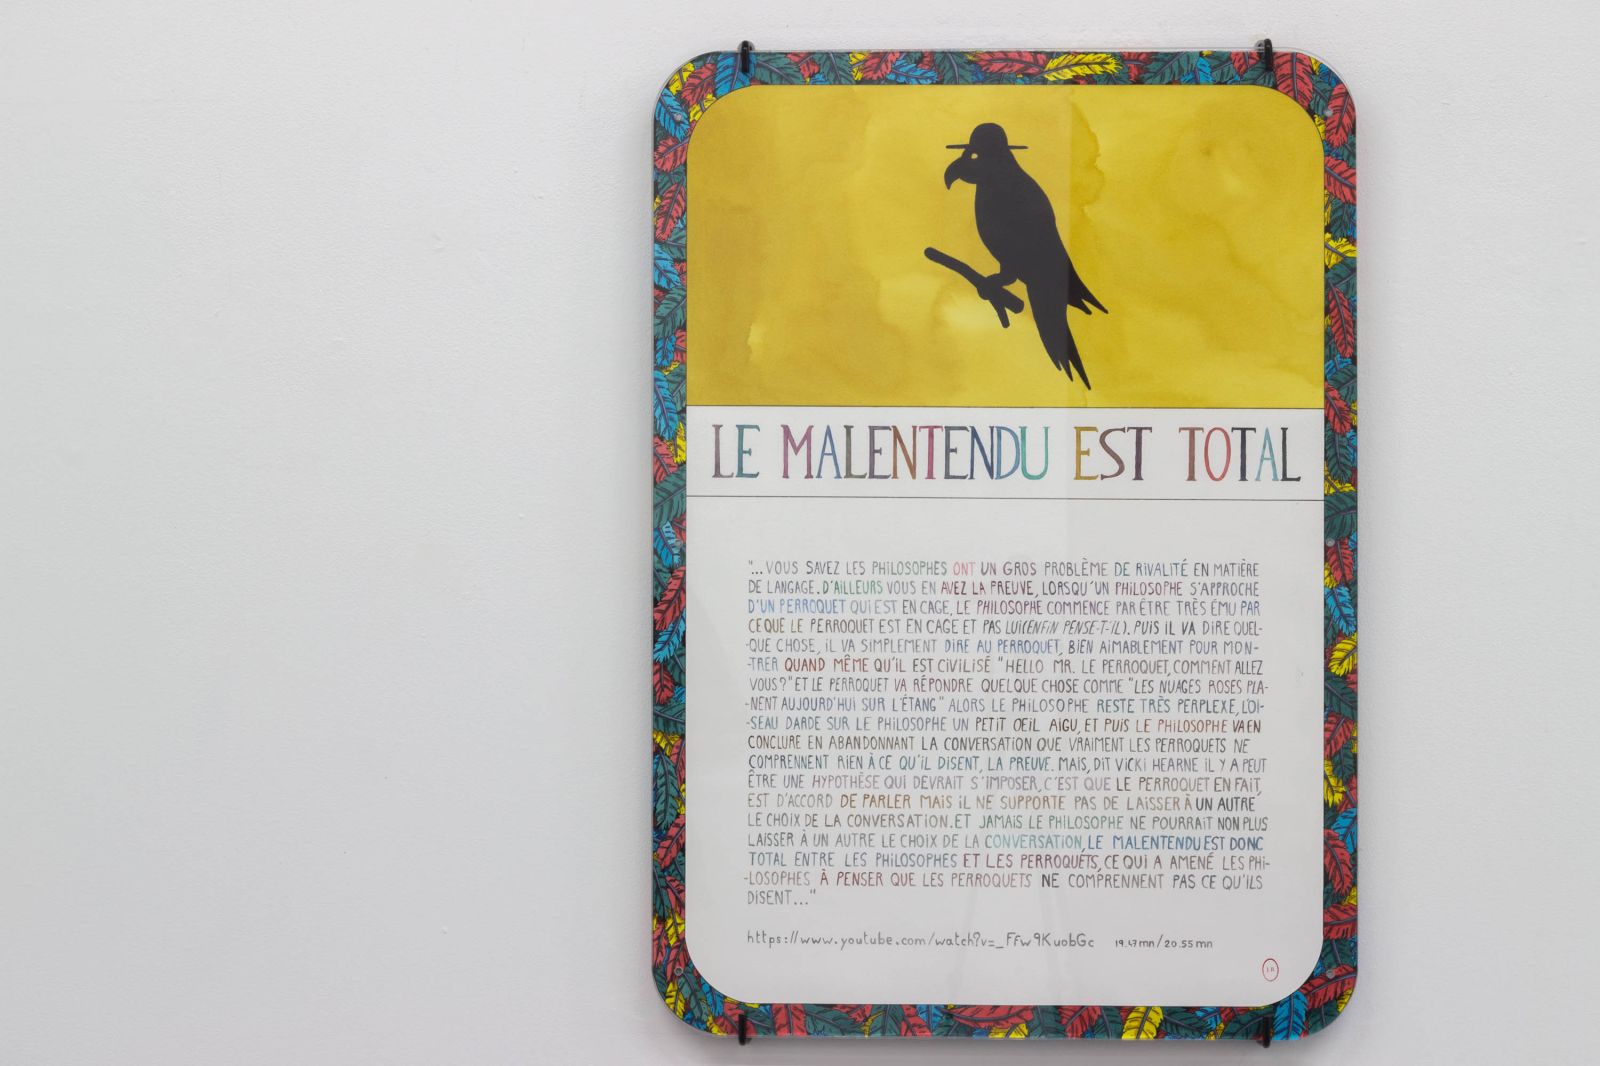 LE MALENTENDU EST TOTAL
"...VOUS SAVEZ LES PHILOSOPHES ONT UN GROS PROBLÈME DE RIVALITÉ EN MATIÈRE
DE LANGAGE. D'AILLEURS VOUS EN AVEZ LA PREUVE, LORSQU'UN PHILOSOPHE S'APPROCHE
D'UN PERROQUET QUI EST EN CAGE, LE PHILOSOPHE COMMENCE PAR ÊTRE TRÈS ÉMU PAR
CE QUE LE PERROQUET EST EN CAGE ET PAS LUI(ENFIN PENSE-T-IL). PUIS IL VA DIRE QUEL-
-QUE CHOSE, IL VA SIMPLEMENT DIRE AU PERROQUET, BIEN AIMABLEMENT POUR MON-
-TRER QUAND MÊME QU'IL EST CIVILISÉ "HELLO MR. LE PERROQUET, COMMENT ALLEZ
VOUS?" ET LE PERROQUET VA RÉPONDRE QUELQUE CHOSE COMME "LES NUAGES ROSES PLA-
-NENT AUJOURD'HUI SUR L'ÉTANG" ALORS LE PHILOSOPHE RESTE TRÈS PERPLEXE, L'OI-
-SEAU DARDE SUR LE PHILOSOPHE UN PETIT OEIL AIGU, ET PUIS LE PHILOSOPHE VA EN
CONCLURE EN ABANDONNANT LA CONVERSATION QUE VRAIMENT LES PERROQUETS NE
COMPRENNENT RIEN À CE QU'IL DISENT, LA PREUVE. MAIS, DIT VICKI HEARNE IL Y A PEUT
ÊTRE UNE HYPOTHÈSE QUI DEVRAIT S'IMPOSER, C'EST QUE LE PERROQUET EN FAIT,
EST D'ACCORD DE PARLER MAIS IL NE SUPPORTE PAS DE LAISSER À UN AUTRE
LE CHOIX DE LA CONVERSATION. ET JAMAIS LE PHILOSOPHE NE POURRAIT NON PLUS
LAISSER À UN AUTRE LE CHOIX DE LA CONVERSATION, LE MALENTENDU EST DONC
TOTAL ENTRE LES PHILOSOPHES ET LES PERROQUETS, CE QUI A AMENÉ LES PHI-
-LOSOPHES À PENSER QUE LES PERROQUETS NE COMPRENNENT PAS CE QU'ILS
DISENT..."
https://www.youtube.com/watch?v=_Ffw9KuobGc 19.47mn/20.55mn